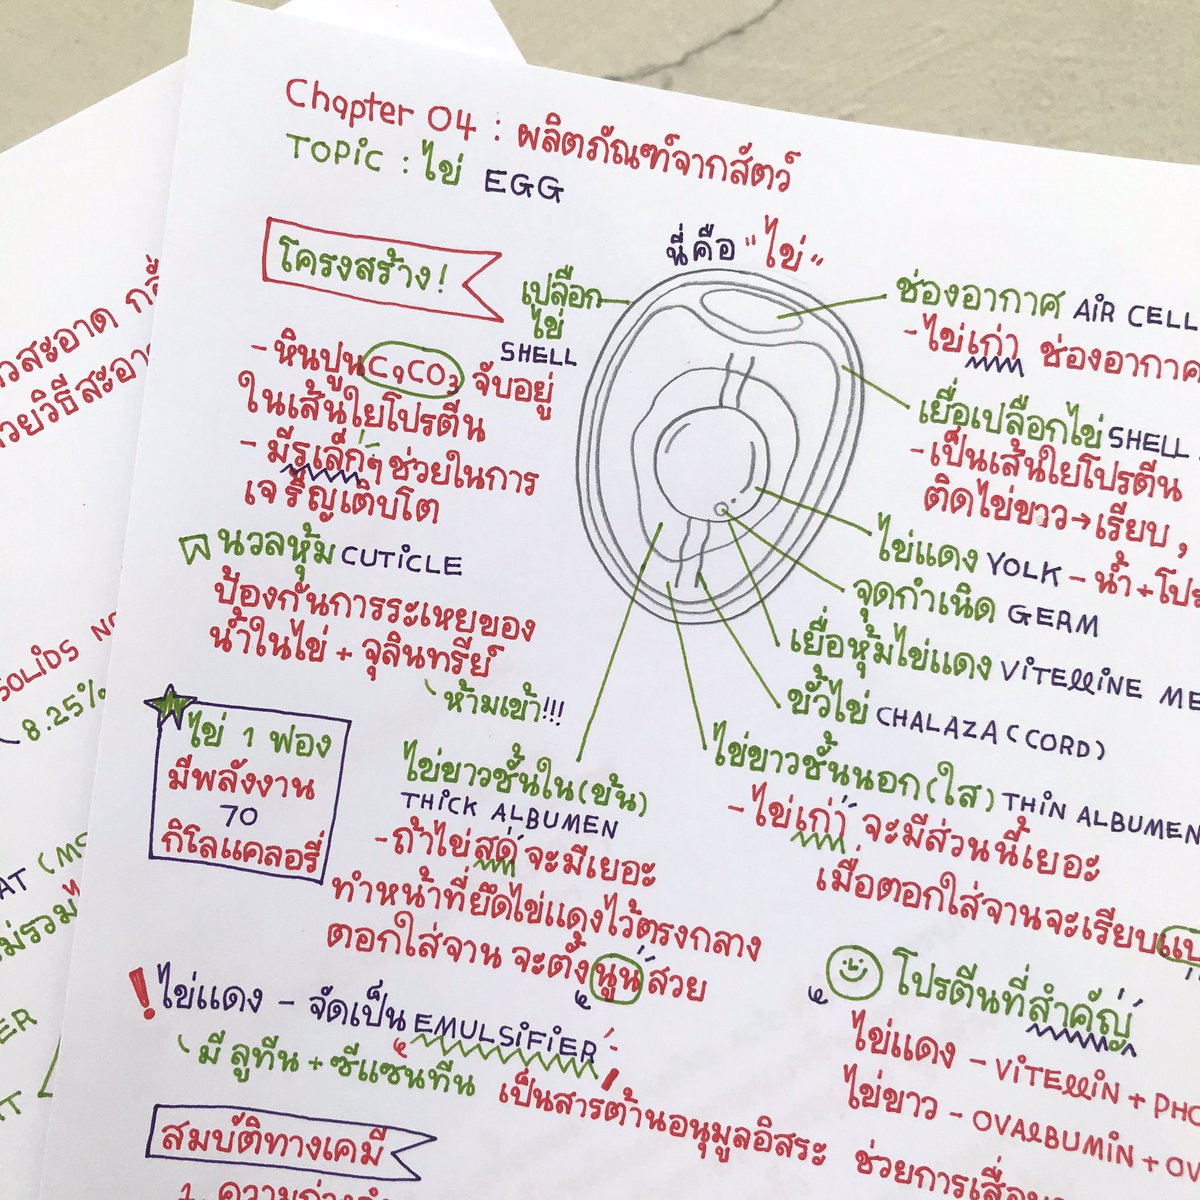 Chapter 04 : ผลิตภัณฑ์จากสัตว์
TOPIC : ไข่ EGG
โครงสร้าง!
นี่คือ "ไข่"
เปลือก
ไข่
SHELL
- หินปูน CaCO3 จับอยู่
ในเส้นใยโปรตีน
- มีรูเล็กๆ ช่วยในการ
เจริญเติบโต
นวลหุ้ม CUTICLE
ป้องกันการระเหยของ
น้ำในไข่ + จุลินทรีย์
ห้ามเข้า!!!
ไข่ 1 ฟอง
มีพลังงาน
70
กิโลแคลอรี่
ช่องอากาศ AIR CELL
- ไข่เก่า ช่องอากาศ
เยื่อเปลือกไข่ SHELL
- เป็นเส้นใยโปรตีน
ติดไข่ขาว → เรียบ,
ไข่แดง YOLK - น้ำ + โปร
จุดกำเนิด GERM
เยื่อหุ้มไข่แดง VITELLINE ME
ขั้วไข่ CHALAZA (CORD)
ไข่ขาวชั้นนอก (ใส) THIN ALBUMEN
- ไข่เก่า จะมีส่วนนี้เยอะ
เมื่อตอกใส่จานจะเรียบแบ
ไข่ขาวชั้นใน (ข้น)
THICK ALBUMEN
- ถ้าไข่สด จะมีเยอะ
ทำหน้าที่ยึดไข่แดงไว้ตรงกลาง
ตอกใส่จาน จะตั้งนูนสวย
! ไข่แดง - จัดเป็น EMULSIFIER
มี ลูทีน + ซีแซนทีน เป็นสารต้านอนุมูลอิสระ ช่วยการเสื่อม
โปรตีนที่สำคัญ
ไข่แดง - VITELLIN + PHO
ไข่ขาว - OVALBUMIN + OV
สมบัติทางเคมี
1. ความ
วสะอาด
วยวิธีสะอา
SOLIDS NO
8.25%
AT (MS
ม่รวมไ
ER